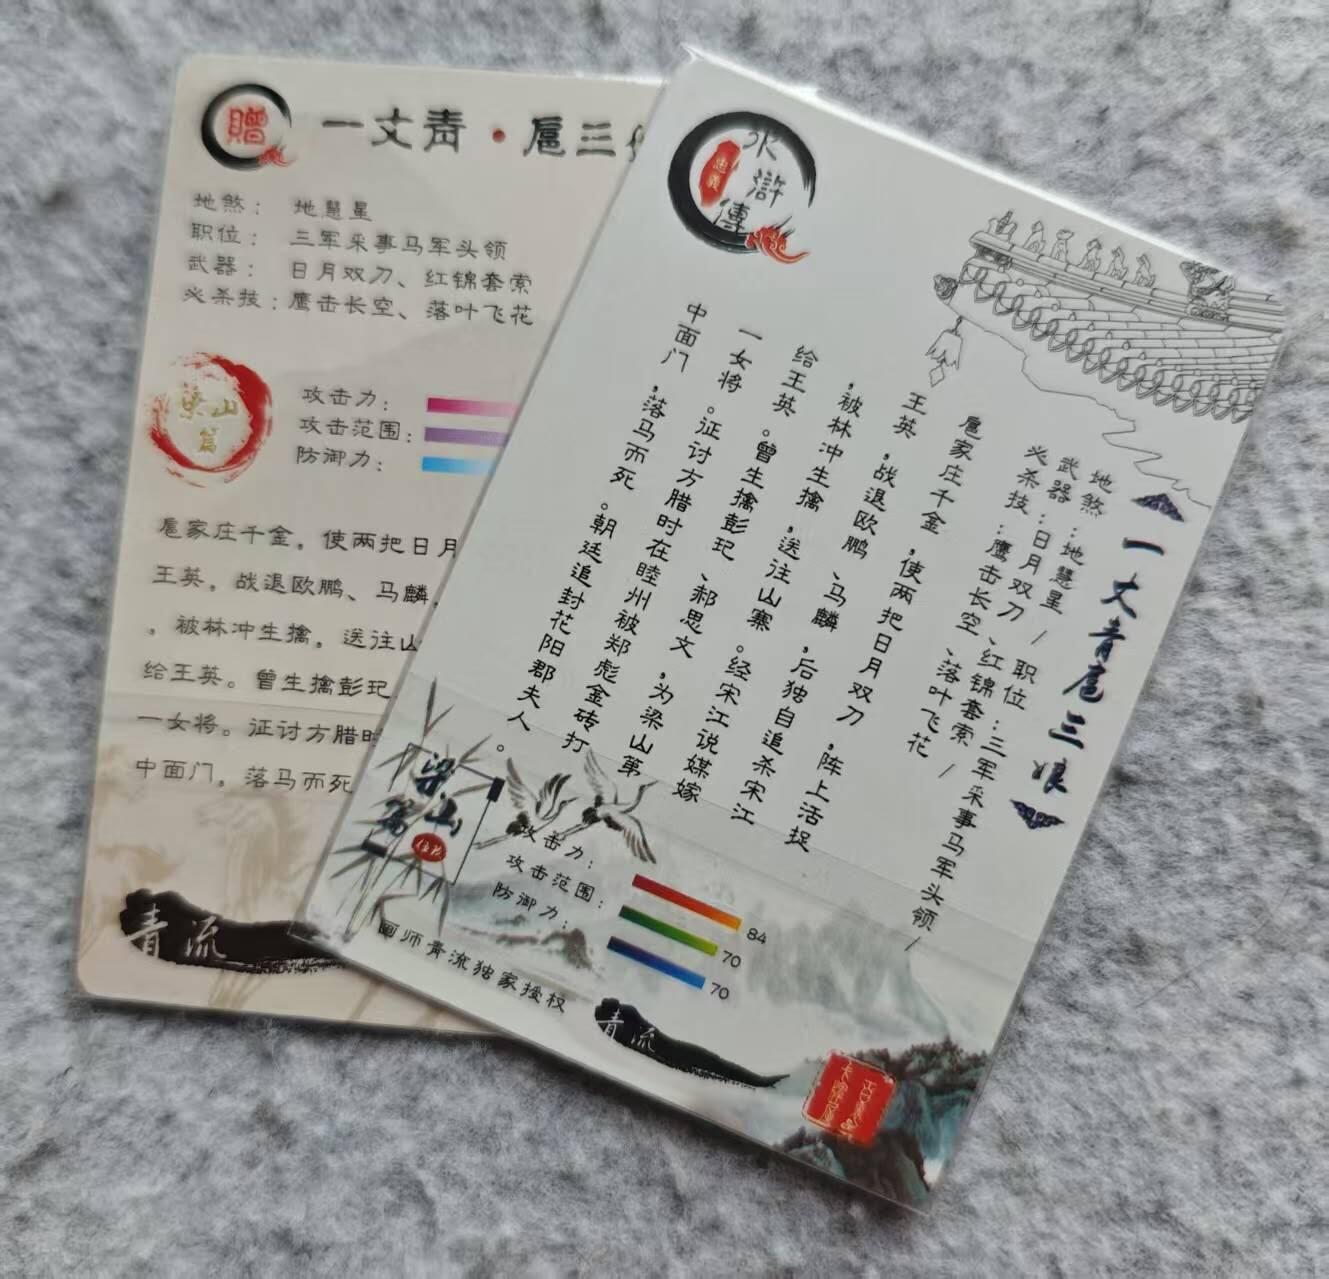 贈
一丈青·扈三
地煞：地慧星
职位：三军采事马军头领
武器：日月双刀、红锦套索
必杀技：鹰击长空、落叶飞花
梁山
篇
攻击力：
攻击范围：
防御力：
扈家庄千金。使两把日月
王英。战退欧鹏、马麟，
。被林冲生擒。送往山
给王英。曾生擒彭玘
一女将。征讨方腊时
中面门。落马而死
青流
水滸傳
忠義
一丈青扈三娘
地煞：地慧星/职位：三军采事马军头领/
武器：日月双刀、红锦套索/
必杀技：鹰击长空、落叶飞花
扈家庄千金，使两把日月双刀，阵上活捉
王英，战退欧鹏、马麟，后独自追杀宋江
，被林冲生擒，送往山寨。经宋江说媒嫁
给王英。曾生擒彭玘、郝思文，为梁山第
一女将。征讨方腊时在睦州被郑彪金砖打
中面门，落马而死。朝廷追封花阳郡夫人。
梁山
篇
攻击力：84
攻击范围：70
防御力：70
画师青流独家授权
青流